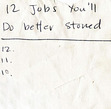 12 Jobs You'll
Do better stoned
12.
11.
10.